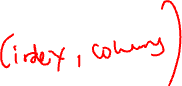 (index, columns)